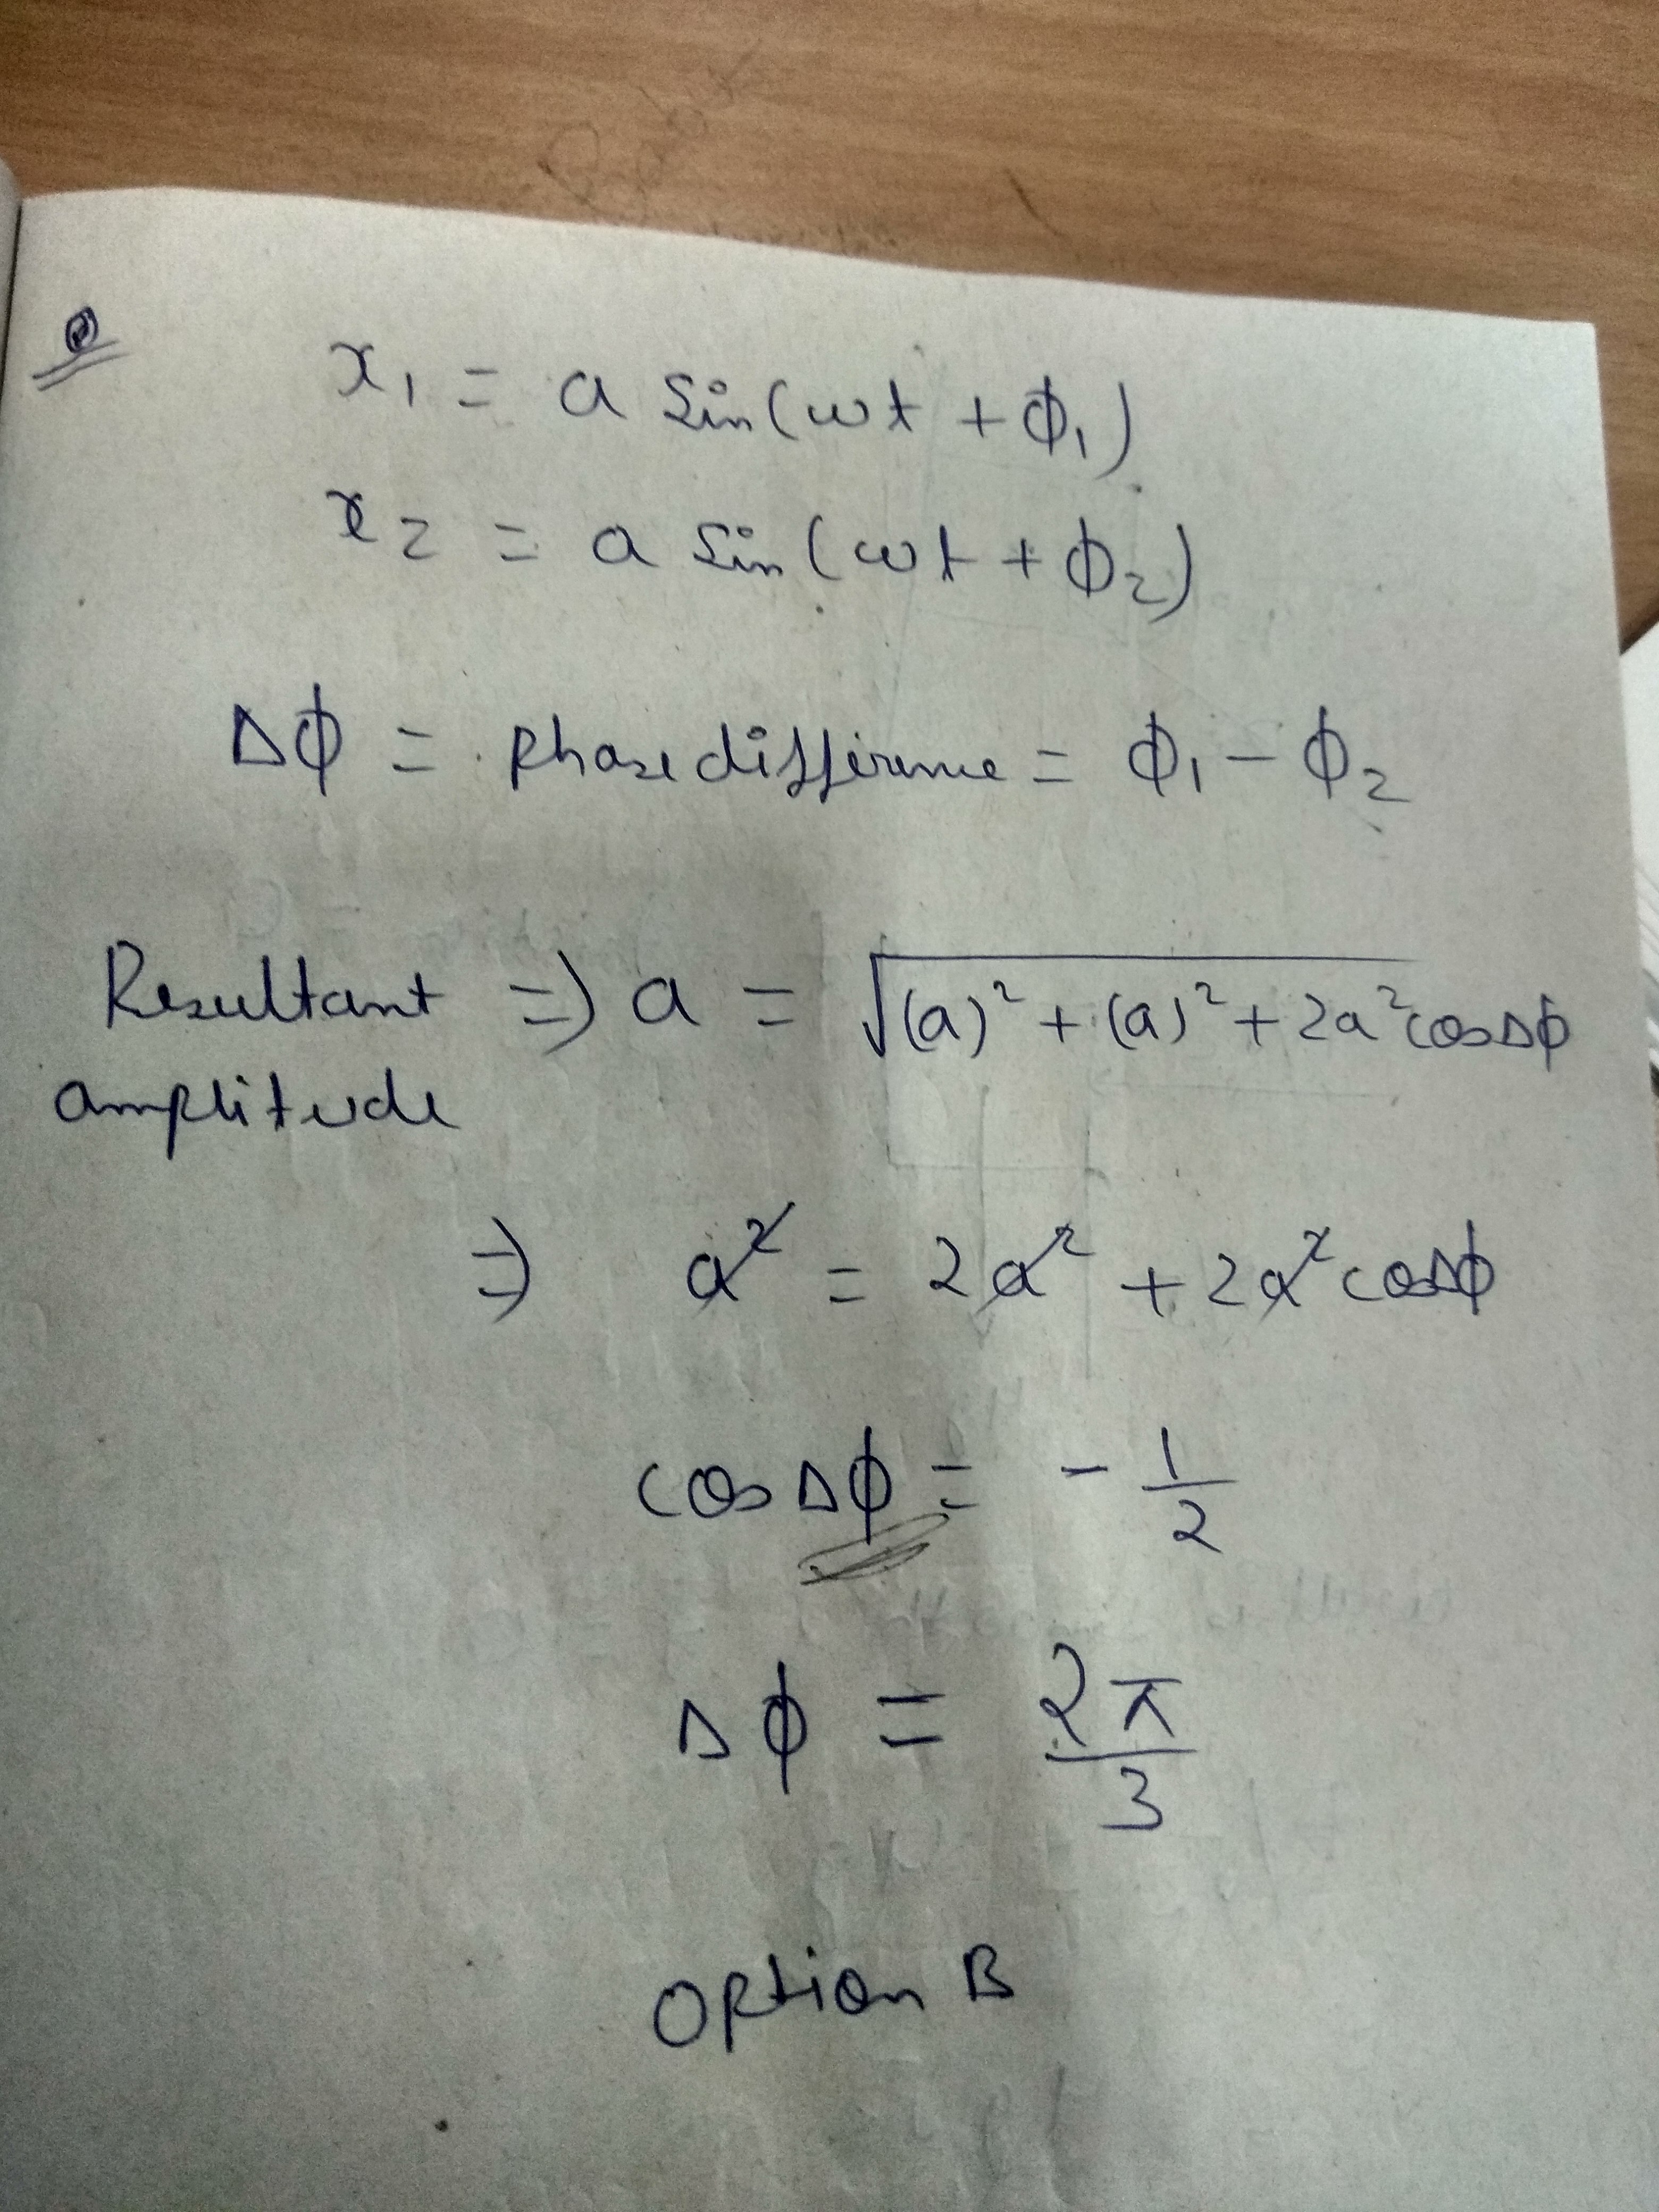 x₁ = a Sin(ωt + ϕ₁)
x₂ = a Sin(ωt + ϕ₂)
Δϕ = phase difference = ϕ₁ - ϕ₂
Resultant ⇒ a = √((a)² + (a)² + 2a² cosΔϕ)
amplitude
⇒ a² = 2a² + 2a² cosΔϕ
cosΔϕ = - 1/2
Δϕ = 2π/3
Option B